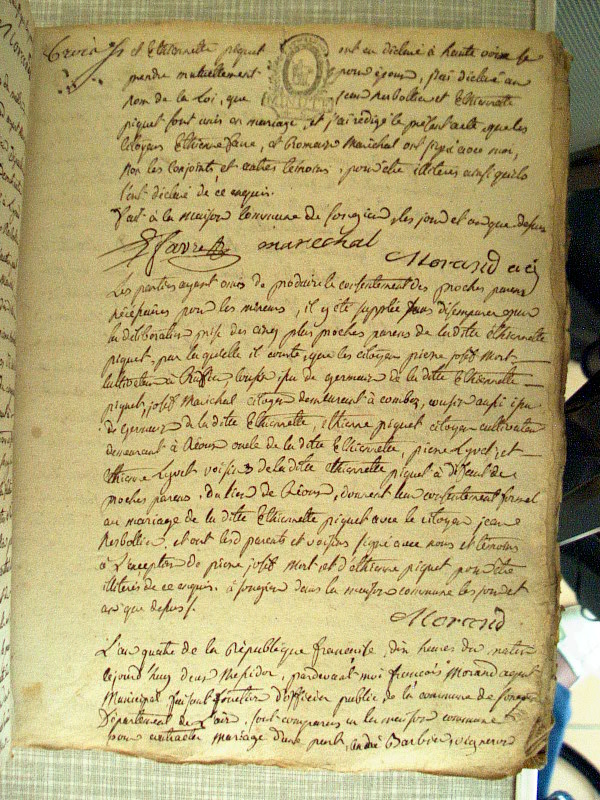 et Ethiennette piquet ont eu déclaré à haute voix se
prendre mutuellement pour époux, j'ai déclaré au
nom de la Loi, que jean Rerbollier et Ethiennette
piquet sont unis en mariage, et j'ai rédigé le présent acte, que les
citoyens Ethienne favre, et Romain Maréchal ont signé avec moi,
Non les conjoints et autres témoins, pour être illiteres ainsi quils
l'ont déclaré de ce enquis.
fait à la maison commune de songieu, les jour et an que depuis
favre marechal
Morand
Les parties ayant omis de produire le consentement des proches parens
nécéssaires pour les mineurs, il y été supplée sans désemparer
la deliberation prise des cinq plus proches parens de la ditte Ethiennette
piquet, par laquelle il conste, que les citoyens pierre joseph Mort
cultivateur à cousin de germain de la ditte Ethiennette
piquet, joseph Maréchal citoyen demeurant à cousin aussi
de germain de la ditte Ethiennette, ethienne piquet citoyen cultivateur
demeurant à oncle de la ditte Ethiennette, pierre Lyvet, et
ethienne Lyvet voisins de la ditte Ethiennette piquet à défaut de
proches parens, du lieu de donnent leur consentement formel
au mariage de la ditte Ethiennette piquet avec le citoyen jean
Rerbollier, et ont lesd parents et voisins signé avec nous et témoins
à l'exception de pierre joseph Mort et d'ethienne piquet pour être
illiterés de ce enquis. à songieu dans la maison commune les jour et
an que depuis.
Morand
L'an quatre de la République francaise, dix heures du matin
cejourd'huy deux Messidor, pardevant moi françois Morand agent
Municipal faisant fonction d'officier public de la commune de songieu
Département de l'ain, sont comparus en la maison commune
pour contracter mariage d'une part, andré Barbier vigneron